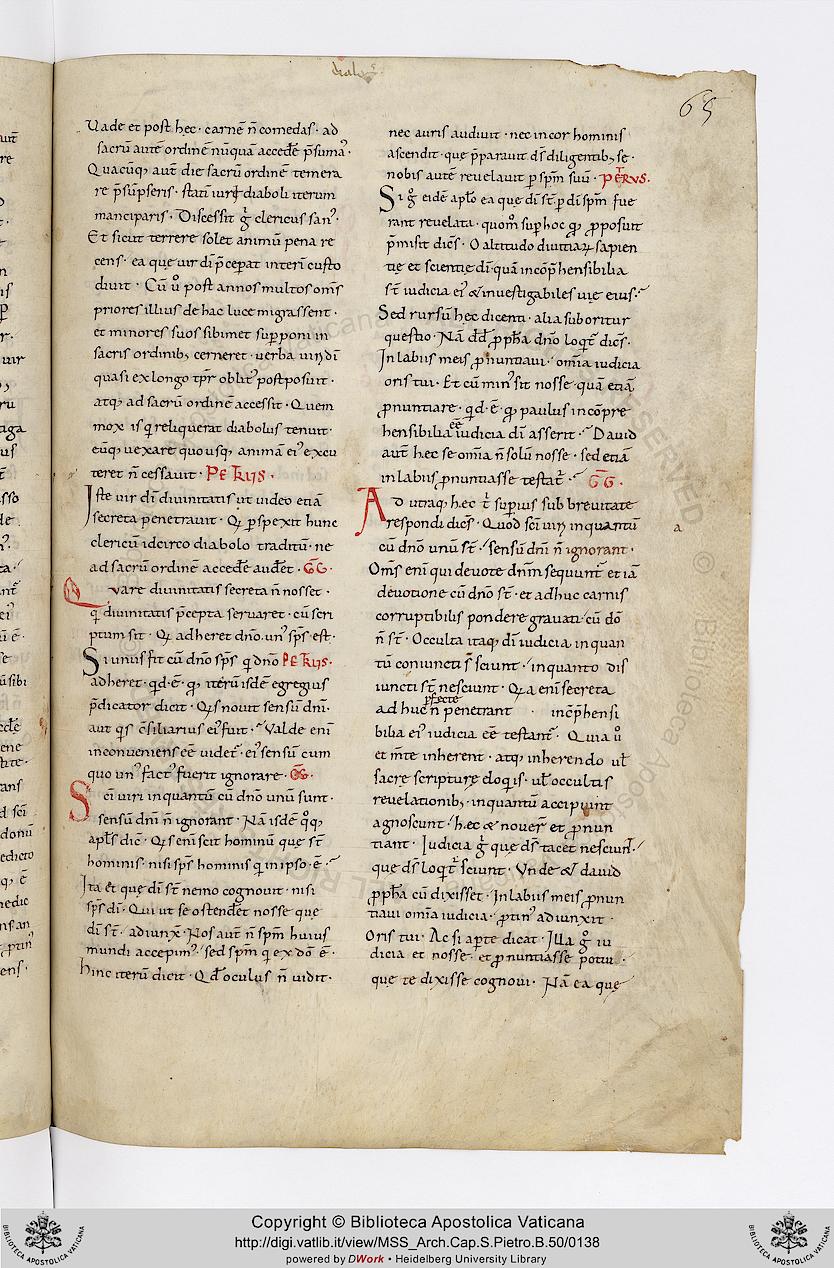 dialoḡ
65
Uade et post hęc · carnē n̄ comedas · ad
sacrū autē ordinē nūquā accedē p̄sumaˀ.
Quacūq; aut̄ die sacrū ordinē temera
re p̄sūpseris · statī iuri diaboli iterum
manciparis · Discessit ḡ clericus sanˀ.
Et sicut terrere solet animū pena re
cens · ea que uir dī p̄ceperat interī custo
diuit · Cū ů post annos multos om̄s
priores illius de hac luce migrassent ·
et minores suos sibimet sup̱poni in
sacris ordinib; cerneret · uerba uiri dī
quasi ex longo tp̄r oblitˀ postposuit ·
atq; ad sacrū ordinē accessit · Quem
mox is q̇ reliquerat diabolus tenuit ·
eūq; uexare quousq; animā eiˀ excu
teret n̄ cessauit · PETRUS ·
Iste uir dī diuinitatis ut uideo etiā
secreta penetrauit · Qr̄ p̱spexit hunc
clericū idcirco diabolo traditū · ne
ad sacrū ordinē accedē audet̄ · GG·
Quare diuinitatis secreta n̄ nosset ·
q̇ diuinitatis p̄cepta seruaret · cū scri
ptum sit · Qi adheret dn̄o · unˀ sp̄s est ·
Si unus fit cū dn̄o sp̄s q̇ dn̄o PETRUS·
adheret · qd ē · q; iterū isdē egregius
p̄dicator dicit · Qis nouit sensū dn̄i ·
aut qis c̄siliarius eiˀ fuit · Valde enī
inconueniens eē uidet̄ · eiˀ sensū cum
quo unˀ factˀ fuerit ignorare · GG·
Sc̄i uiri inquantū cū dn̄o unū sunt ·
sensū dn̄i n̄ ignorant · Nā isdē q̊q;
apl̄s dic̄ · Qis enī scit hominū que st̄
hominis · nisi sp̄s hominis q̇ in ipso · ē ·
Ita et que dī st̄ nemo cognouit · nisi
sp̄s dī · Qui ut se ostendet̄ nosse que
dī st̄ · adiunx̄ · Nos aut̄ n̄ sp̄m huius
mundi accepimˀ · sed sp̄m q̇ ex dō ē ·
hinc iterū dicit · Qd̄ oculus n̄ uidit ·
nec auris audiuit · nec in cor hominis
ascendit · que p̄parauit d̄s diligentib; se ·
nobis autē reuelauit p̱ sp̄m suū · PETRVS·
Si ḡ eidē ap̄lo ea que dī st̄ p̱ dī sp̄m fue
rant reuelata · quom̊ sup̱ hoc qd̄ p̱posuit
p̄misit dicēs · O altitudo diuitiaꝝ sapien
tię et scientię dī · quā incōp̄hensibilia
st̄ iudicia eiˀ & inuestigabiles uię eius ·
Sed rursū hęc dicenti · alia suboritur
questio · Nā dd̄ p̱ph̄a dn̄o loqit̄ dicēs ·
In labiis meis p̱nuntiaui · omīa iudicia
oris tui · Et cū minˀ sit nosse · quā etiā
p̱nuntiare · qd · ē · qd̄ paulus incōpre
hensibilia eē iudicia dī asserit · David
aut̄ hęc se omīa n̄ solū nosse · sed etiā
in labiis p̱nuntiasse testat̄ · GG·
Ad utraq; hęc t̄ sup̱ius sub breuitate
respondi dicēs · Quod sc̄i uiri inquantū
cū dn̄o unū st̄ · sensū dn̄i n̄ ignorant ·
Om̄s enī qui deuote dn̄m sequunt̄ · et iā
deuotione cū dn̄o st̄ · et adhuc carnis
corruptibilis pondere grauati · cū dō
n̄ st̄ · Occulta itaq; dī iudicia inquan
tū coniuncti st̄ sciunt · inquanto dis
iuncti st̄ nesciunt · Q̇a enī secreta
adhuc p̱fecte n̄ penetrant · incp̄hensi
bilia eiˀ iudicia eē testant̄ · Quia ů
et m̄te inherent · atq; inherendo ul̄
sacrę scripturę eloq̇is · ul̄ occultis
reuelationib; · inquantū accipiunt
agnoscunt · hęc & nouer̄ et p̱nun
tiant · Iudicia ḡ que d̄s tacet nesciun̄ ·
que d̄s loqit̄ sciunt · Vnde & dauid
p̱ph̄a cū dixisset · In labiis meis p̱nun
tiaui omīa iudicia · p̱tinˀ adiunxit ·
Oris tui · Ac si ap̱te dicat · Illa ḡ iu
dicia et nosse · et p̱nuntiasse potui ·
que te dixisse cognoui · Nā ea que
a
Copyright © Biblioteca Apostolica Vaticana
http://digi.vatlib.it/view/MSS_Arch.Cap.S.Pietro.B.50/0138
powered by DWork • Heidelberg University Library